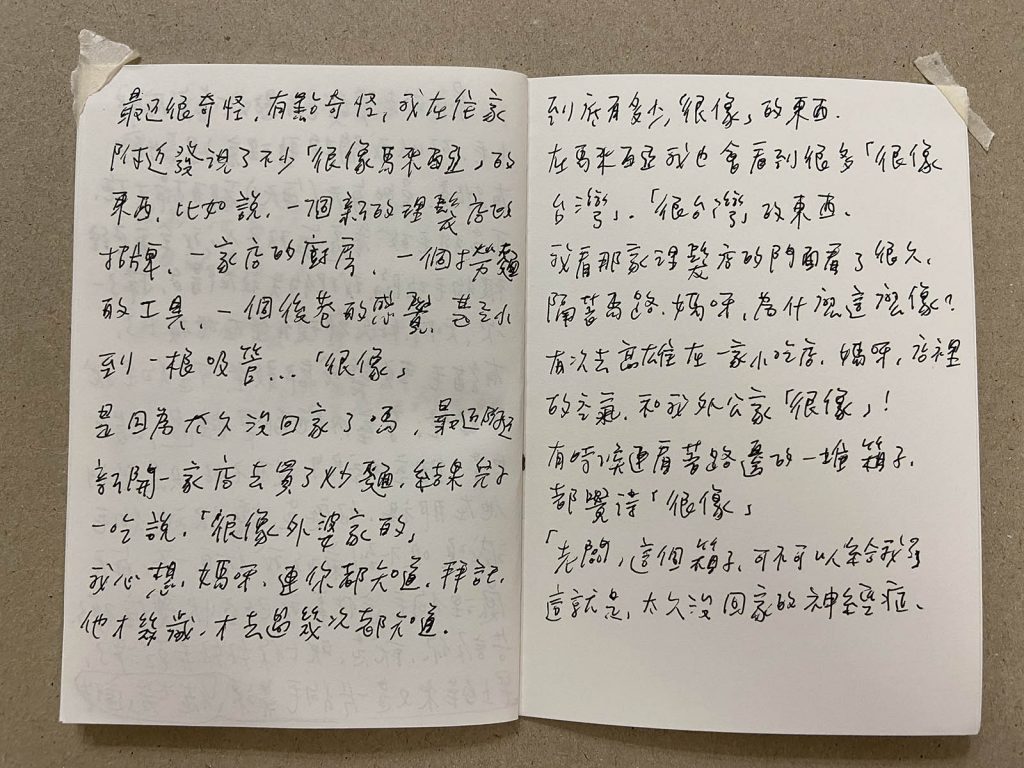 最近很奇怪,有點奇怪,我在住家
附近發現了不少「很像馬來西亞」的
東西,比如說,一個新的理髮店的
招牌、一家店的廚房、一個撈麵
的工具、一個後巷的感覺,甚至小
到一根吸管...「很像」
是因為太久沒回家了嗎,最近附近
新開一家店去買了炒麵,結果兒子
一吃說,「很像外婆家的」
我心想,媽呀,連你都知道,拜託,
他才幾歲,才去過幾次都知道.
到底有多少「很像」的東西.
在馬來西亞我也會看到很多「很像
台灣」、「很台灣」的東西.
我看那家理髮店的門面看了很久,
隔著馬路,媽呀,為什麼這麼像?
有次去高雄在一家小吃店,媽呀,店裡
的空氣,和我外公家「很像」!
有時候連看著路邊的一堆箱子,
都覺得「很像」
「老闆,這個箱子,可不可以給我」
這就是,太久沒回家的神經症、